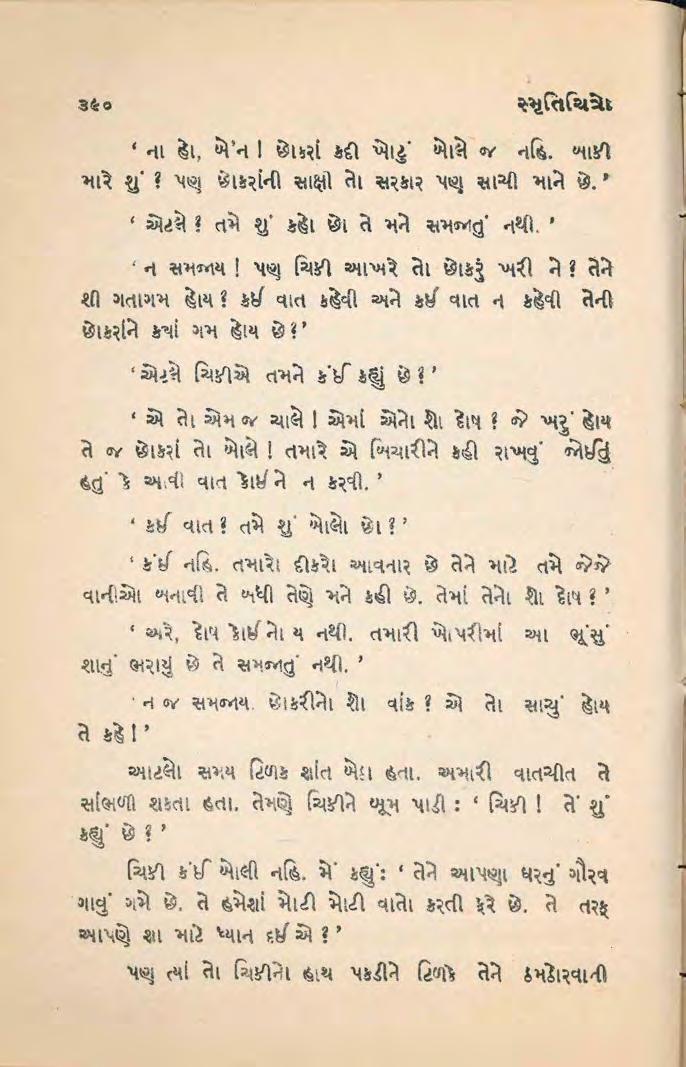 ૩૯૦ સ્મૃતિચિત્રો
‘ ના હો, બે'ન ! છોકરાં કદી ખોટું બોલે જ નહિ. બાકી
મારે શું ? પણ છોકરાંની સાક્ષી તો સરકાર પણ સાચી માને છે. ’
‘ એટલે ? તમે શું કહો છો તે મને સમજાતું નથી. ’
‘ ન સમજાય ! પણ ચિકી આખરે તો છોકરું ખરી ને ? તેને
શી ગતાગમ હોય ? કઈ વાત કહેવી અને કઈ વાત ન કહેવી તેની
છોકરાંને ક્યાં ગમ હોય છે ?’
‘ એટલે ચિકીએ તમને કંઈ કહ્યું છે ? ’
‘ એ તો એમ જ ચાલે ! એમાં એનો શો દોષ ? જે ખરું હોય
તે જ છોકરાં તો બોલે ! તમારે એ બિચારીને કહી રાખવું જોઈતું
હતું કે આવી વાત કોઈને ન કરવી. ’
‘ કઈ વાત ? તમે શું બોલો છો ? ’
‘ કંઈ નહિ. તમારો દીકરો આવનાર છે તેને માટે તમે જેજે
વાનીઓ બનાવી તે બધી તેણે મને કહી છે. તેમાં તેનો શો દોષ ? ’
‘ અરે, દોષ કોઈનો ય નથી. તમારી ખોપરીમાં આ ભૂંસું
શાનું ભરાયું છે તે સમજાતું નથી. ’
‘ ન જ સમજાય. છોકરીનો શો વાંક ? એ તો સાચું હોય
તે કહે ! ’
આટલો સમય ટિળક શાંત બેઠા હતા. અમારી વાતચીત તે
સાંભળી શકતા હતા. તેમણે ચિકીને બૂમ પાડી : ‘ ચિકી ! તેં શું
કહ્યું છે ? ’
ચિકી કંઈ બોલી નહિ. મેં કહ્યું: ‘ તેને આપણા ઘરનું ગૌરવ
ગાવું ગમે છે. તે હમેશાં મોટી મોટી વાતો કરતી ફરે છે. તે તરફ
આપણે શા માટે ધ્યાન દઈએ ? ’
પણ ત્યાં તો ચિકીનો હાથ પકડીને ટિળકે તેને ઠમઠોરવાની